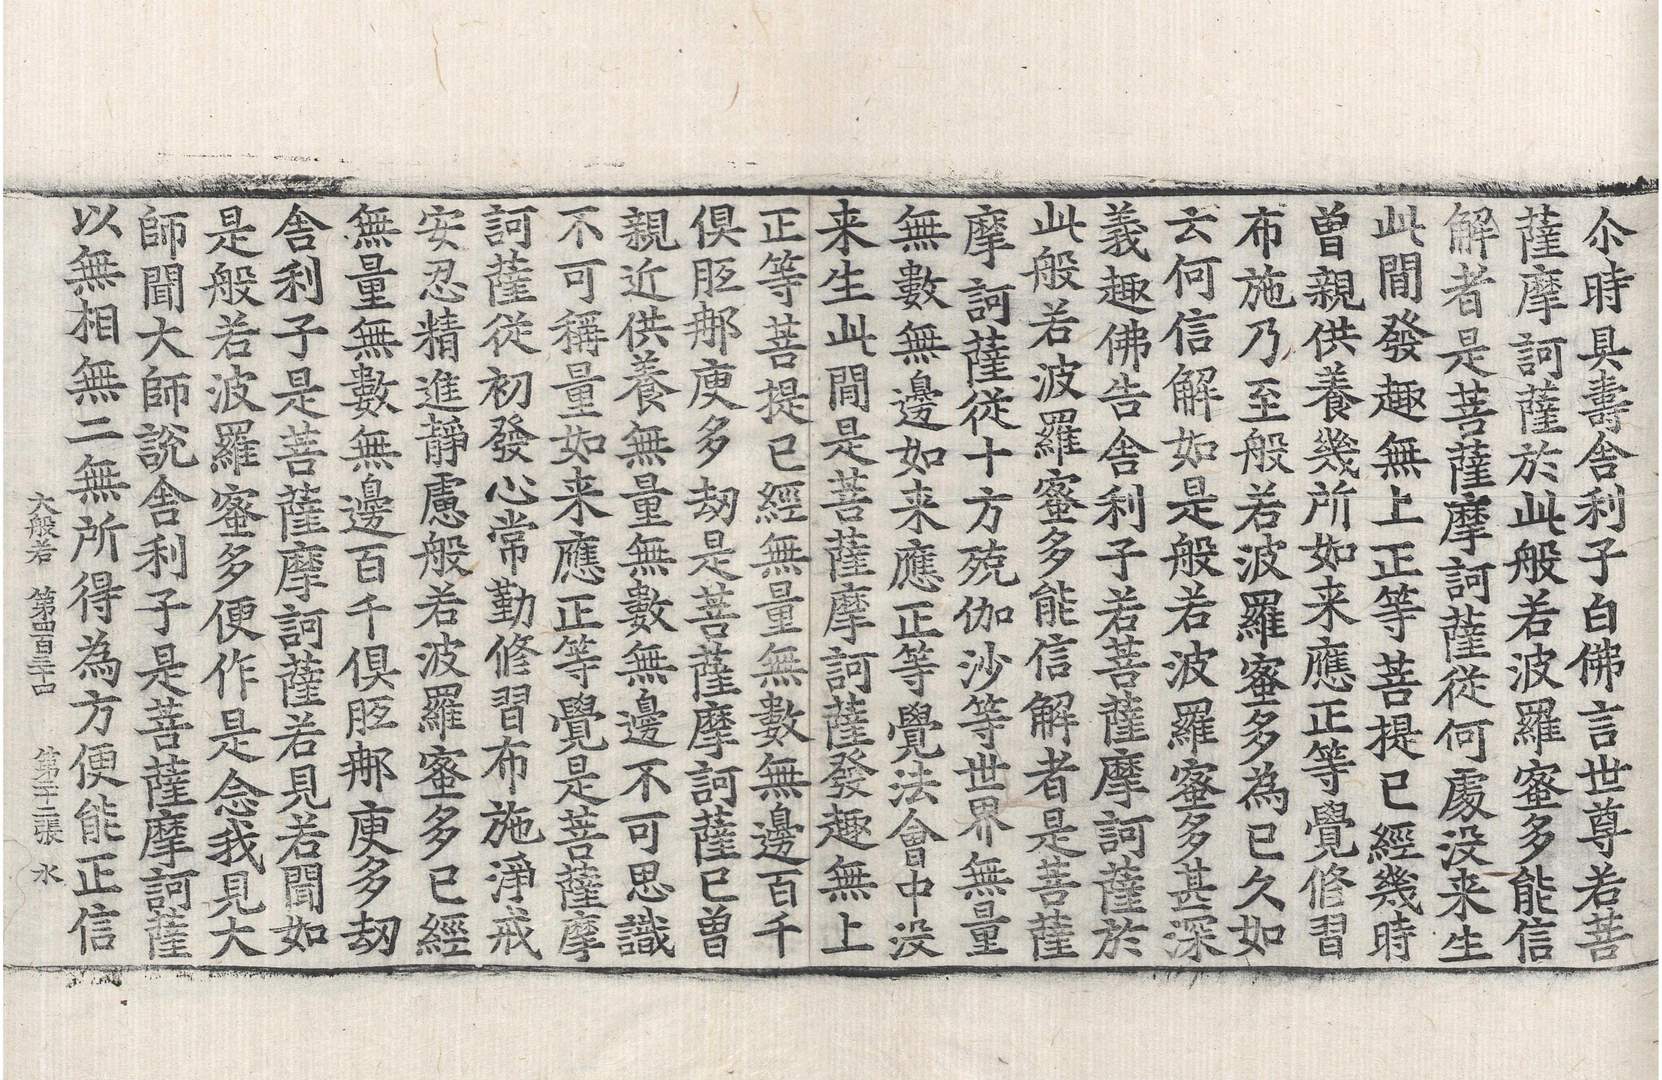 尒時具壽舎利子白佛言世尊若菩
薩摩訶薩於此般若波羅蜜多能信
解者是菩薩摩訶薩從何處没来生
此間發趣無上正等菩提已經幾時
曾親供養幾所如来應正等覺修習
布施乃至般若波羅蜜多為已久如
云何信解如是般若波羅蜜多甚深
義趣佛告舎利子若菩薩摩訶薩於
此般若波羅蜜多能信解者是菩薩
摩訶薩從十方殑伽沙等世界無量
無數無邊如来應正等覺法會中没
来生此間是菩薩摩訶薩發趣無上
正等菩提已經無量無數無邊百千
俱胝那庾多劫是菩薩摩訶薩已曾
親近供養無量無數無邊不可思議
不可稱量如来應正等覺是菩薩摩
訶薩從初發心常勤修習布施淨戒
安忍精進靜慮般若波羅蜜多已經
無量無數無邊百千俱胝那庾多劫
舎利子是菩薩摩訶薩若見若聞如
是般若波羅蜜多便作是念我見大
師聞大師說舎利子是菩薩摩訶薩
以無相無二無所得為方便能正信
大般若 第四百三十四 第十二張 水